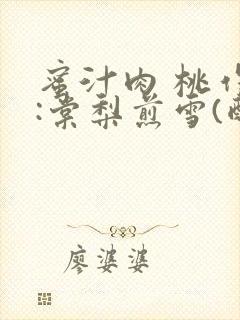 蜜汁肉桃作
:棠梨煎雪(酥
廖婆婆